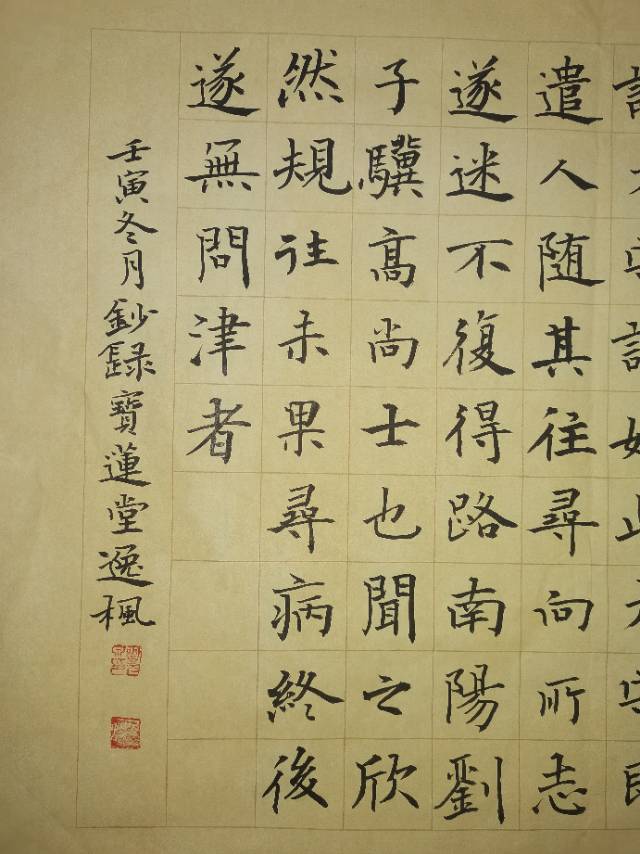 遣人随其往尋向所志
遂迷不復得路南陽劉
子驥高尚士也聞之欣
然規往未果尋病終後
遂無問津者
壬寅冬月鈔録寶蓮堂逸楓